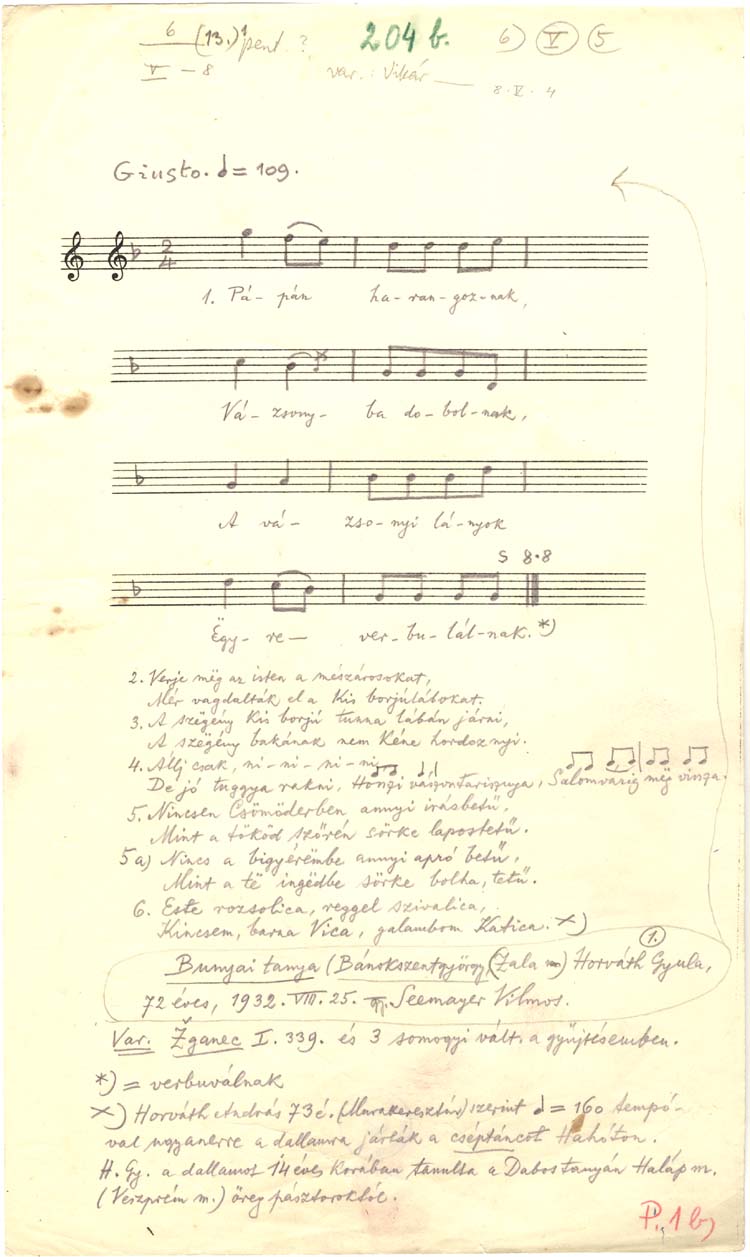 6 (13.)¹ pent. ? 204 b. 6) V 5
V – 8 var.: Vikár
8. V. 4
Giusto. = 109.
2
4
1. Pá- pán ha- ran- goz- nak,
Vá- zsony- ba do- bol- nak,
A vá- zso- nyi lá- nyok
S 8.8
Ëgy- re verbu- lál- nak. *)
2. Verje mëg az isten a mészárosokat,
Mér vagdalták el a kis borjúlábokat.
3. A szëgény kis borjú tunna lábán járni,
A szëgény bakának nem kéne hordoznyi.
4. Állj csak, ni - ni - ni - ni,
De jó tuggya rakni, Salomvárig mëg vissza.
5. Nincsen Csömödérben annyi irásbetű,
Mint a tököd szőrén sörke lapostetű.
5 a) Nincs a bigyérëmbe annyi apró betű,
Mint a të ingëdbe sörke bolha, tetű.
6. Este rozsolica, reggel szivalica,
Kincsem, barna Vica, galambom Katica. ×)
1.
Bunyai tanya (Bánokszentgyörgy (Zala m) Horváth Gyula,
72 éves, 1932. VIII. 25. gy. Seemayer Vilmos.
Var. Žganec I. 339. és 3 somogyi vált. a gyűjtésemben.
*) = verbuválnak
×) Horváth András 73 é. (Murakeresztúr) szerint = 160 tempó-
val ugyanerre a dallamra járták a cséptáncot Hahóton.
H. Gy. a dallamot 14 éves korában tanulta a Dabos tanyán Haláp m.
(Veszprém m.) öreg pásztoroktól.
P. 1 b,